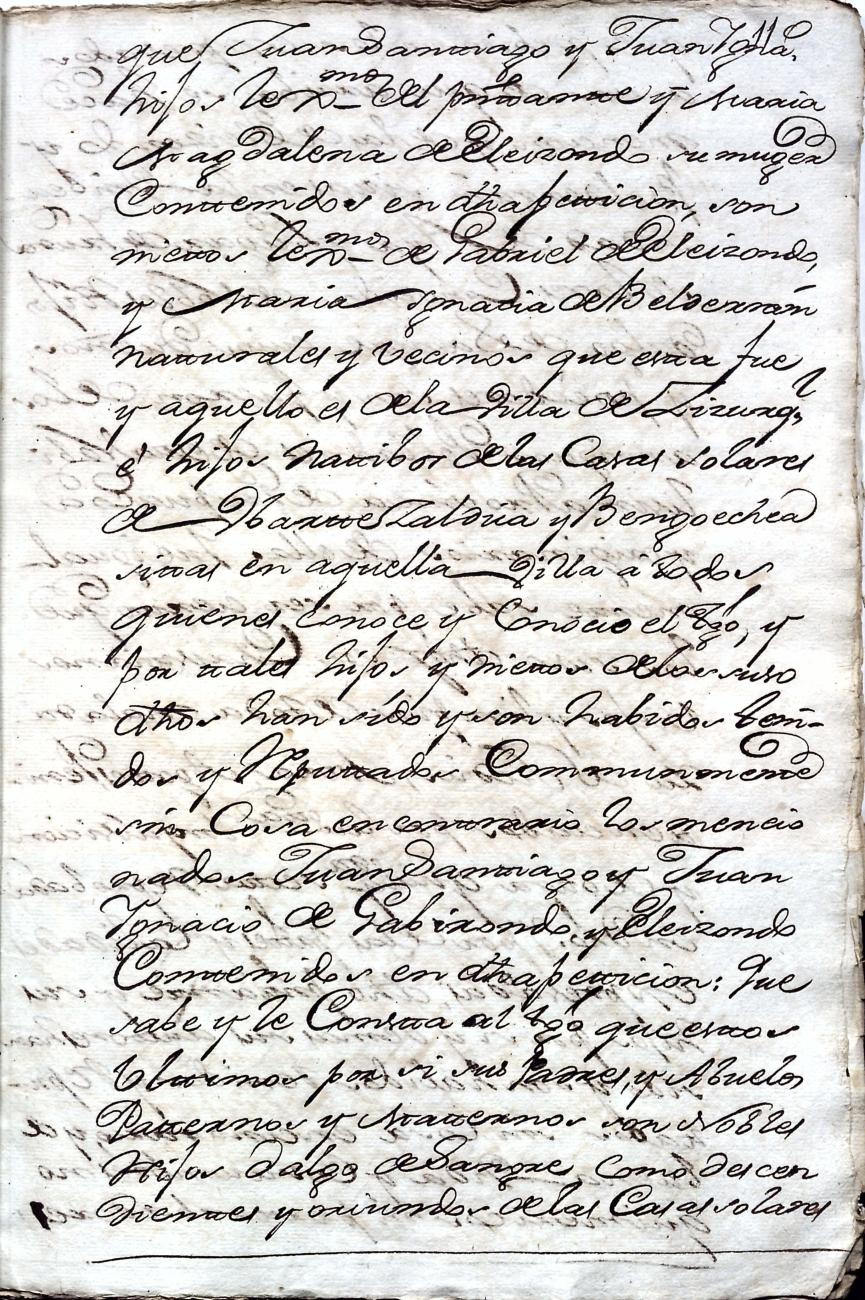 que Juan Santiago y Juan Igna.º
hijos lexmos del pnttante y Maria
Magdalena de Eleizondo su muger
Conttenidos en dha petticion, son
niettos lexmos de Gabriel de Eleizondo,
y Maria Ignacia de Belderrain
natturales y vecinos que esta fue
y aquello es de la Villa de Lizurq.l
é hijos nattibos de las Casas solares
de Ybarre Zaldua y Bengoechea
sittas en aquella Villa á todos
quienes conoce y Conocio el tgó, y
por tales hijos y niettos de los suso
dhos han sido y son habidos ten-
dos y Reputtados Communmente
sin Cosa en conttrario los mencio
nados Juan Santtiago y Juan
Ignacio de Gabirondo, y Eleizondo
Conttenidos en dha petticion: Que
sabe y le Constta al tgó que esttos
Ulttimos por si sus Padres, y Abuelos
Patternos y Matternos son Nobles
Hijos dalgo de Sangre, como descen
dientes y oriundos de las Casas solares